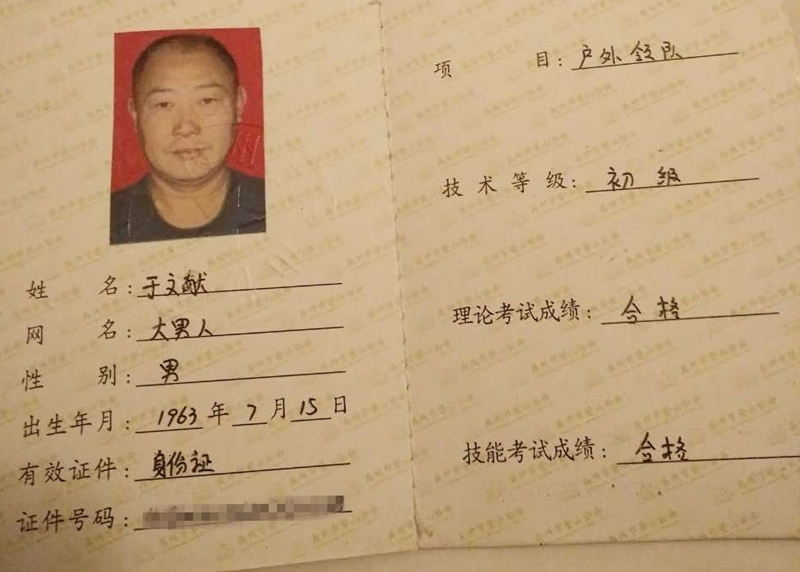 姓名:于文献
网名:大男人
性别:男
出生年月:1963年7月15日
有效证件:身份证
证件号码:
项目:户外领队
技术等级:初级
理论考试成绩:合格
技能考试成绩:合格